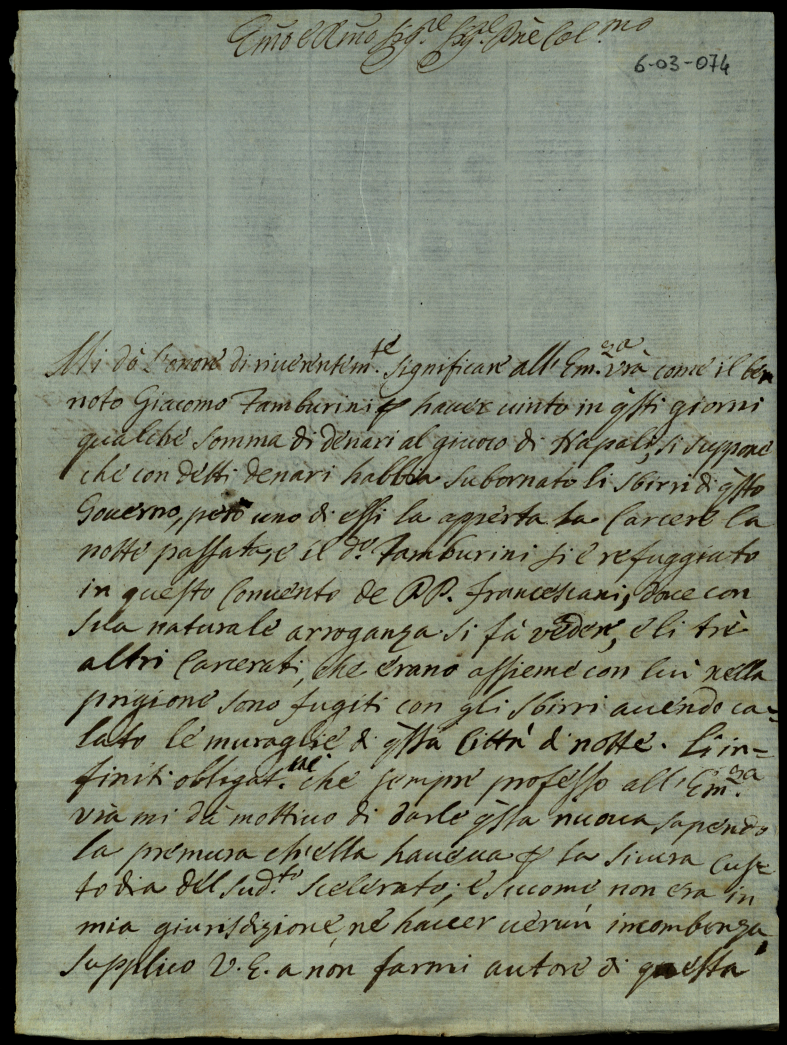 Emo e Rmo Sigre Sigre Pne Colmo
6-03-074
Mi dò l'onore di riuerentemte significare all' Em.za vra come il ben
noto Giacomo Tamburini p hauer uinto in qsti giorni
qualche somma di denari al giuoco di Napoli, si suppone
che con detti denari habbia subornato li sbirri di qsto
Gouerno, però uno di essi la aperta la Carcere la
notte passata, e il do. Tamburini si è refuggiato
in questo Conuento de PP. Francescani, doue con
sua naturale arroganza si fà vedere, e li trè
altri Carcerati, che erano assieme con lui nella
prigione sono fugiti con gli sbirri auendo ca=
lato le muraglie di qsta Città di notte. Li in=
finiti obligat.ni che sempre professo all' Em.za
vra mi dà mottiuo di darle qsta nuoua sapendo
la premura ch'ella haueua p la sicura cus=
todia del sud.to scelerato; e siccome non era in
mia giurisdizione, ne hauer uerun incombenza,
supplico V. E. a non farmi autore di questa